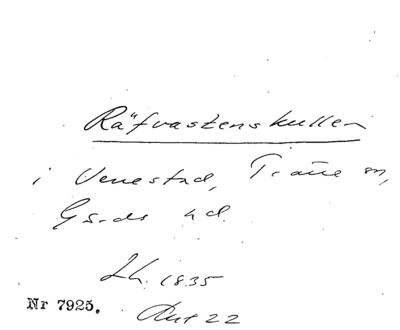 Räfvastenskullen
i Venestad, Träne sn,
Gärds hd.
Lh. 1835
Nr 7925. Akt 22